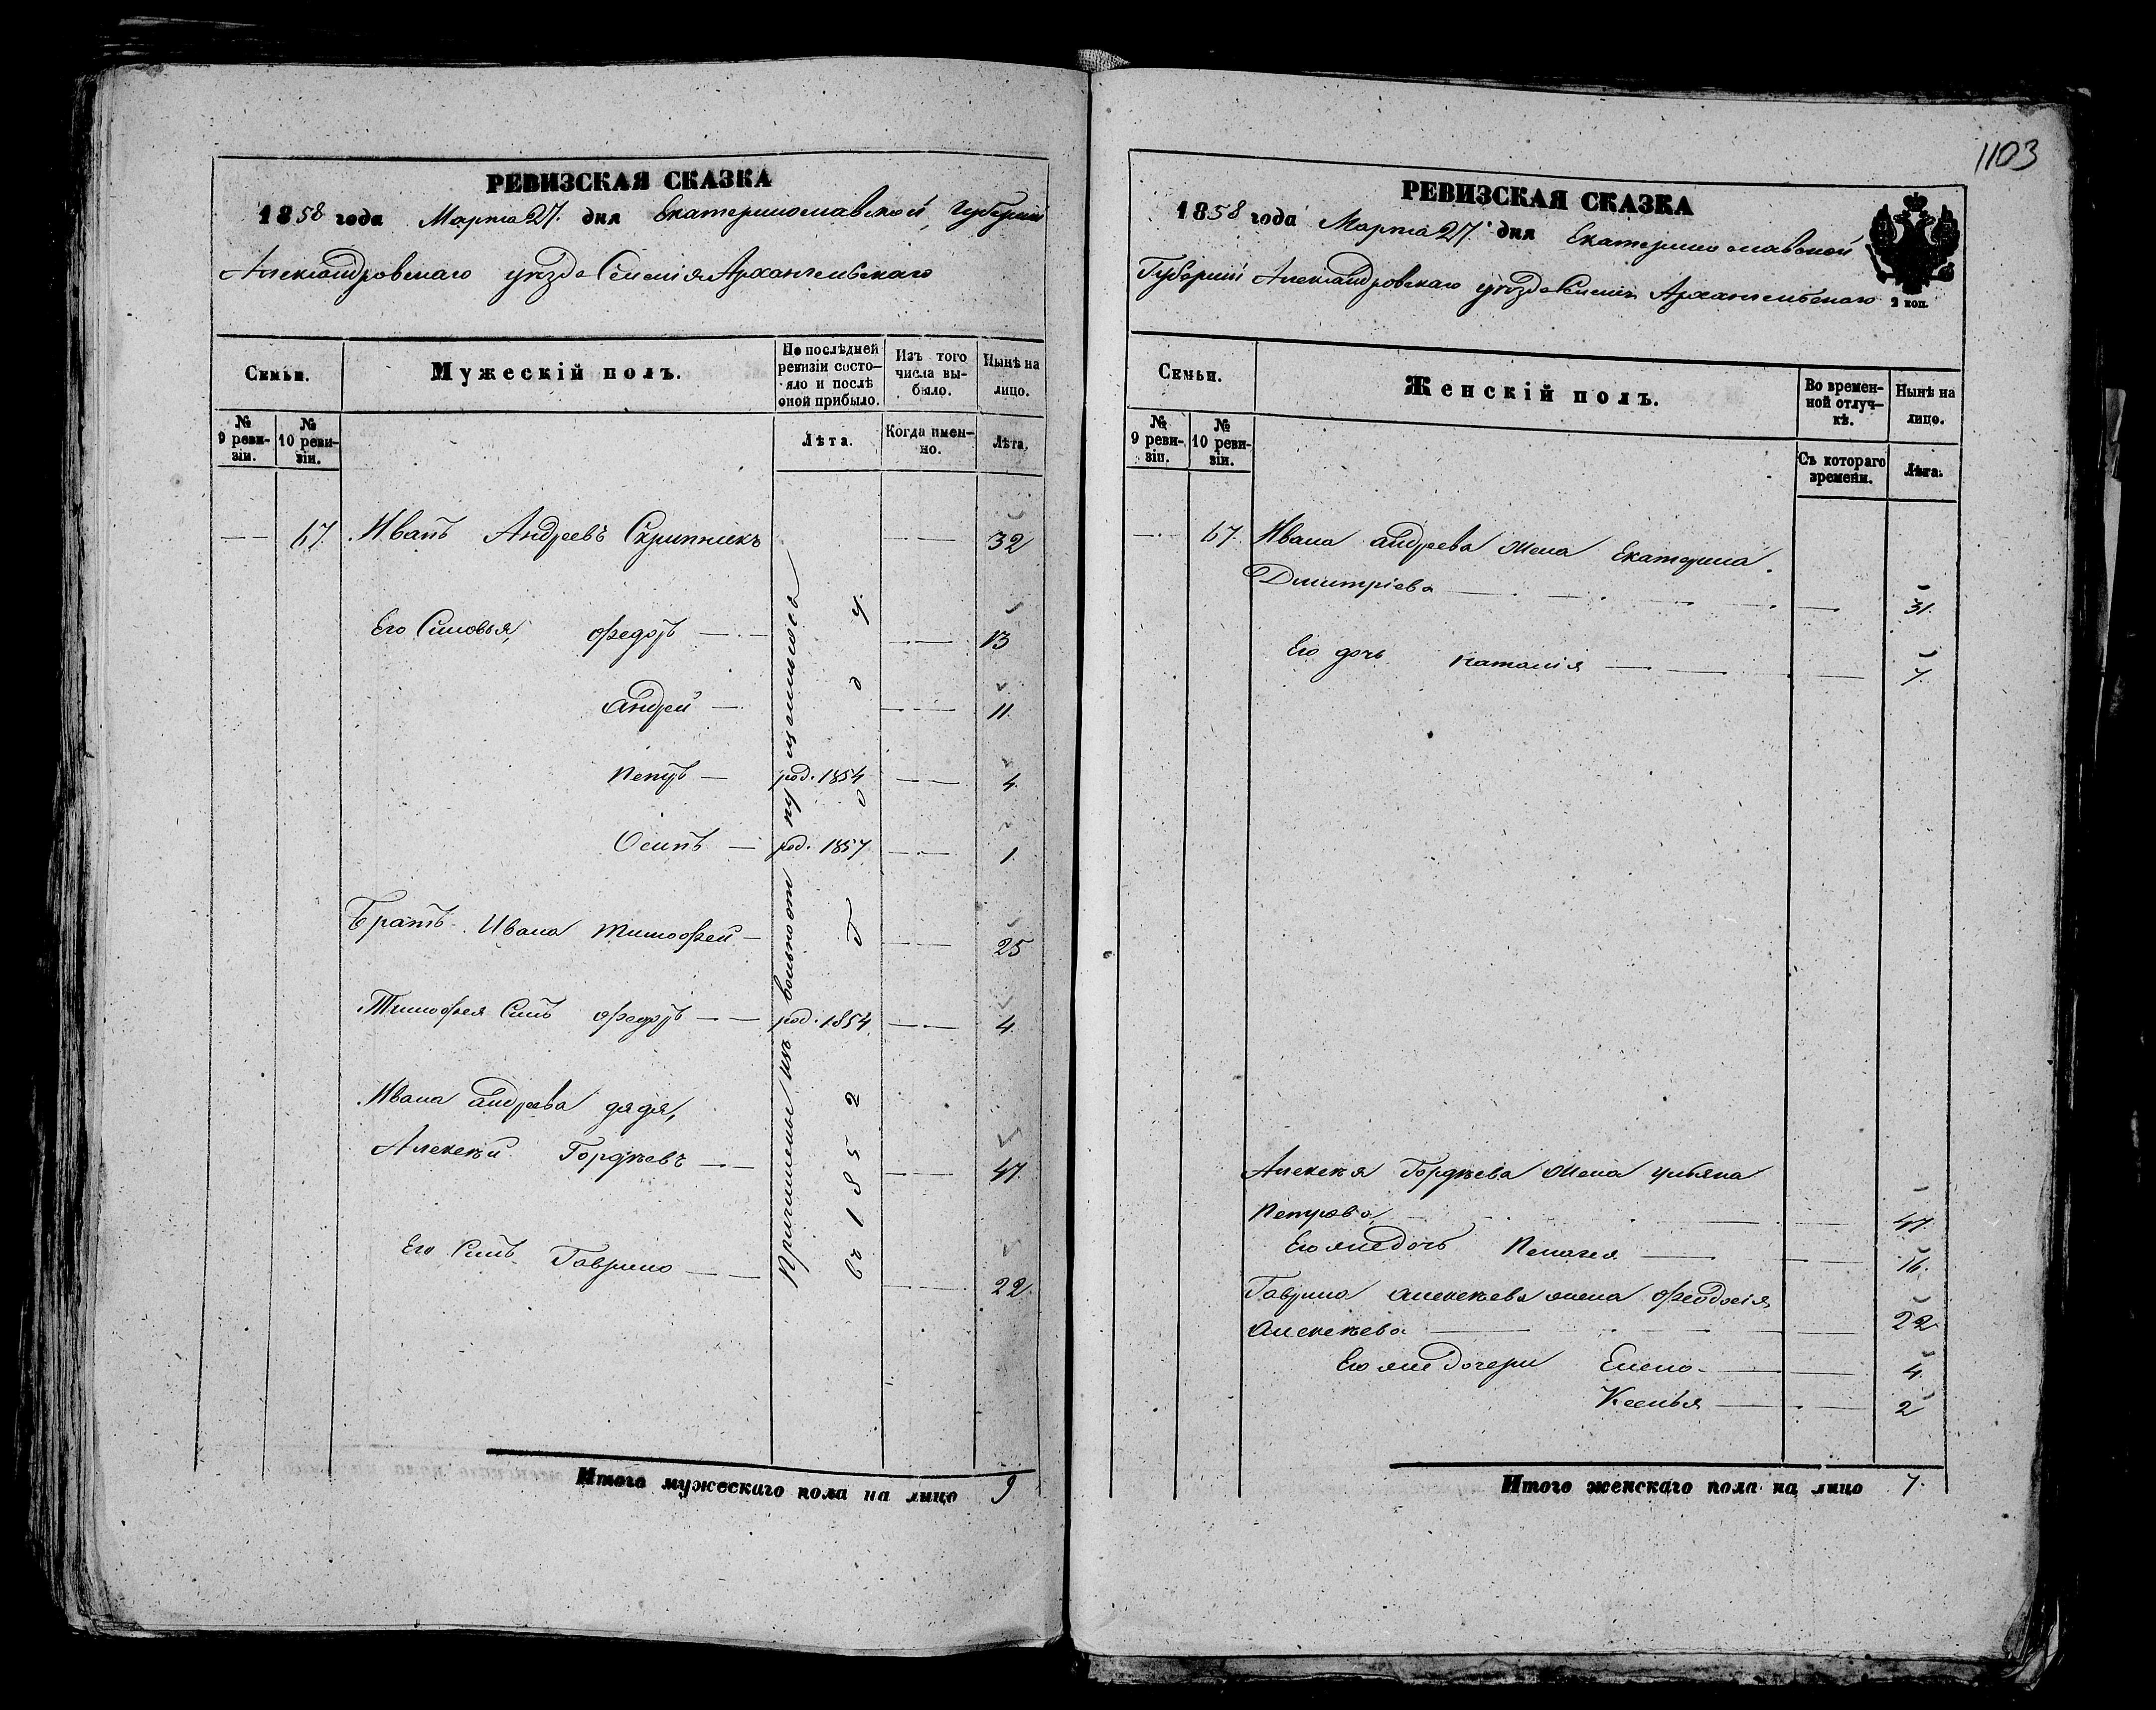 РЕВИЗСКАЯ СКАЗКА
1858 года Марта 27. дня Екатеринославской Губерніи
Александровскаго уѣзда Селенія Архангельскаго
Семьи.
Мужескій полъ.
По послѣдней ревизіи состояло и послѣ оной прибыло.
Изъ того числа выбыло.
Нынѣ на лицо.
№ 9 ревизіи.
№ 10 ревизіи.
Лѣта.
Когда именно.
Лѣта.
67. Иванъ Андреевъ Скрипникъ 32
Его Сыновья, Федоръ 13
Андрей 11.
Петръ род. 1854 4.
Осипъ род. 1857 1.
Братъ Ивана Тимофей 25
Тимофея Сынъ Федоръ род. 1854. 4.
Ивана Андреева дядя,
Алексѣй Гордѣевъ 47.
Его Сынъ Гаврило 22.
Причислены изъ вольноот пущенныхъ
въ 1852 Году
Итого мужескаго пола на лицо 9
1103
РЕВИЗСКАЯ СКАЗКА
1858 года Марта 27. дня Екатеринославской
Губерніи Александровскаго уѣзда Селенія Архангельскаго
2 коп.
Семьи.
Женскій полъ.
Во временной отлучкѣ.
Нынѣ на лицо.
№ 9 ревизіи.
№ 10 ревизіи.
Съ котораго времени.
Лѣта.
67. Ивана Андреева жена Екатерина
Дмитріева 31.
Его дочь Наталія 7.
Алексѣя Гордѣева жена Ульяна
Петрова, 47.
Его же дочь Пелагея 16.
Гаврила Алексѣева жена Феодосія
Алексѣева 22
Его же дочери Елена 4.
Ксенья 2
Итого женскаго пола на лицо 7.